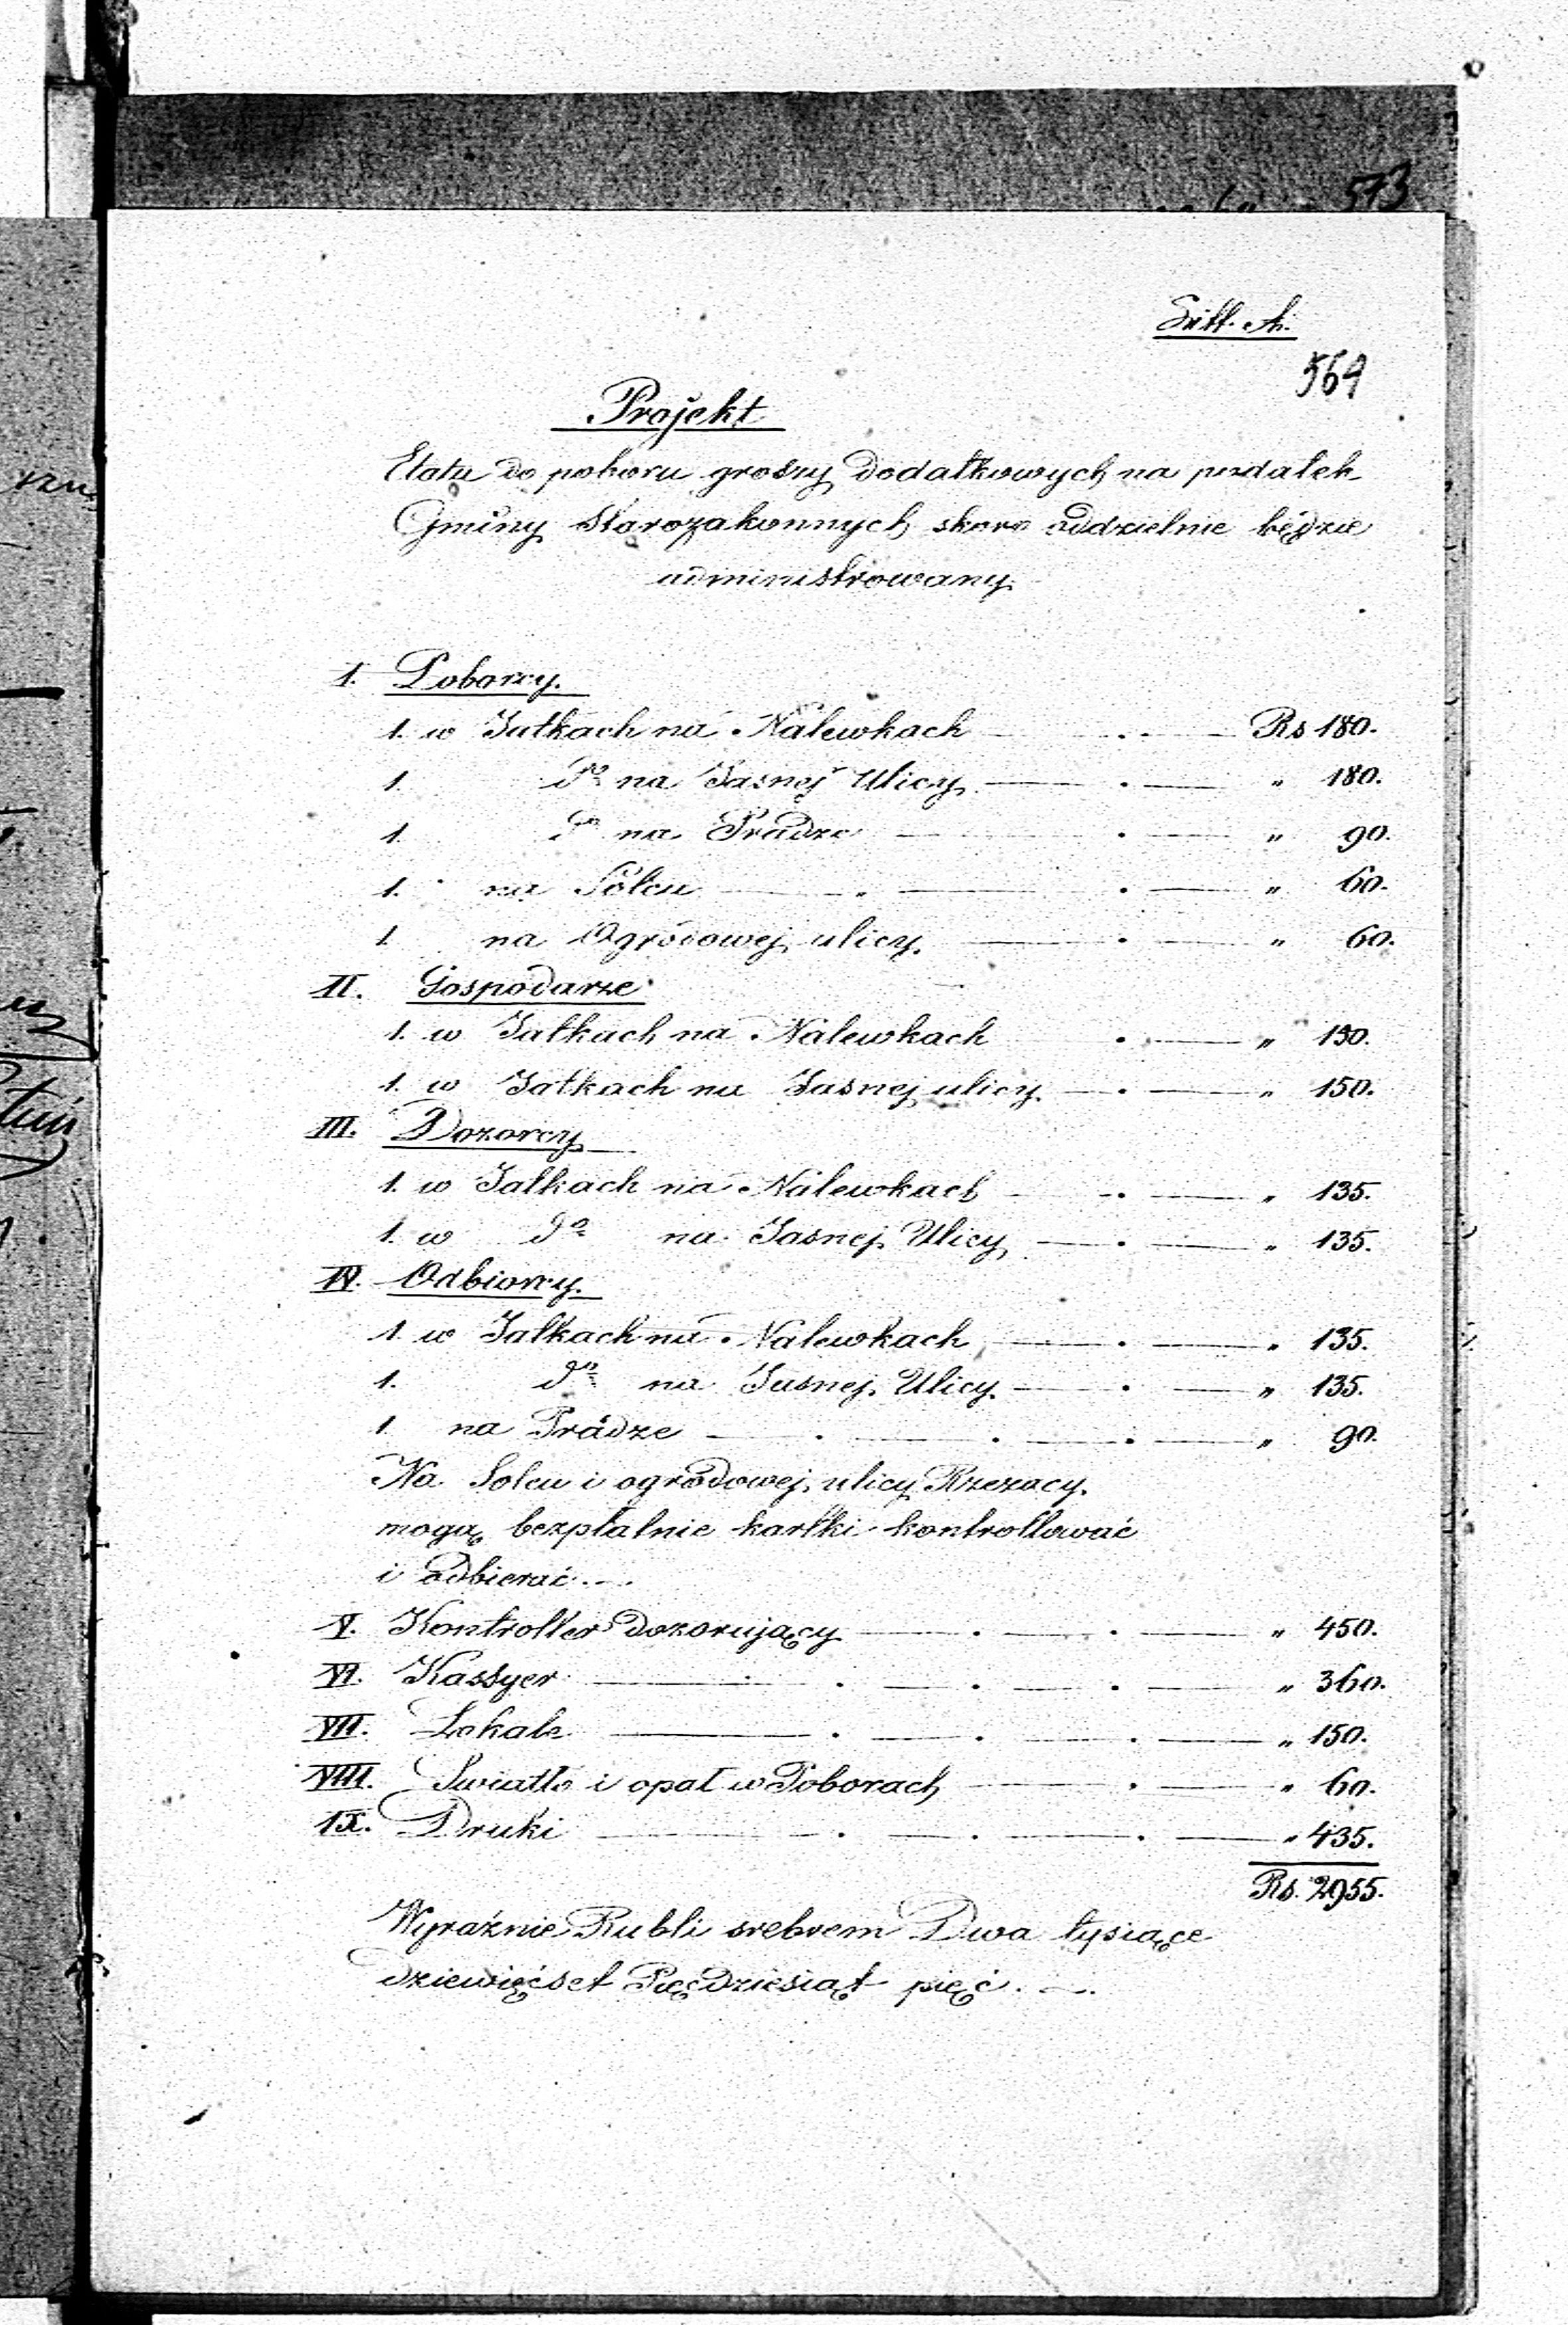 573
Litt. A.
569
Projekt
Etatu do poboru groszy dodatkowych na podatek
Gminy Starozakonnych skoro oddzielnie będzie
administrowany
1. Poborcy.
1. w Jatkach na Nalewkach — . — Rs 180.
1. do na Jasnej Ulicy — . — " 180.
1. do na Pradze — . — " 90.
1. na Solcu — " — . — " 60.
1. na Ogrodowej ulicy — . — " 60.
II. Gospodarze
1. w Jatkach na Nalewkach . — " 150.
1. w Jatkach na Jasnej ulicy — . — " 150.
III. Dozorcy
1. w Jatkach na Nalewkach — . — " 135.
1. w do na Jasnej Ulicy — . — " 135.
IV. Odbiorcy.
1. w Jatkach na Nalewkach — . — " 135.
1. do na Jasnej Ulicy — . — " 135.
1. na Pradze — . — . — . — " 90.
Na Solcu i ogrodowej ulicy Rzezacy
mogą bezpłatnie kartki kontrollować
i odbierać. —.
V. Kontroller dozorujący — . — . — " 450.
VI. Kassyer — . — . — . — " 360.
VII. Lokale — . — . — . — " 150.
VIII. Swiatło i opał w Poborach — . — " 60.
IX. Druki — . — . — . — " 435.
Rs. 2955.
Wyraźnie Rubli srebrem Dwa tysiące
dziewięćset Pięćdziesiąt pięć. —.